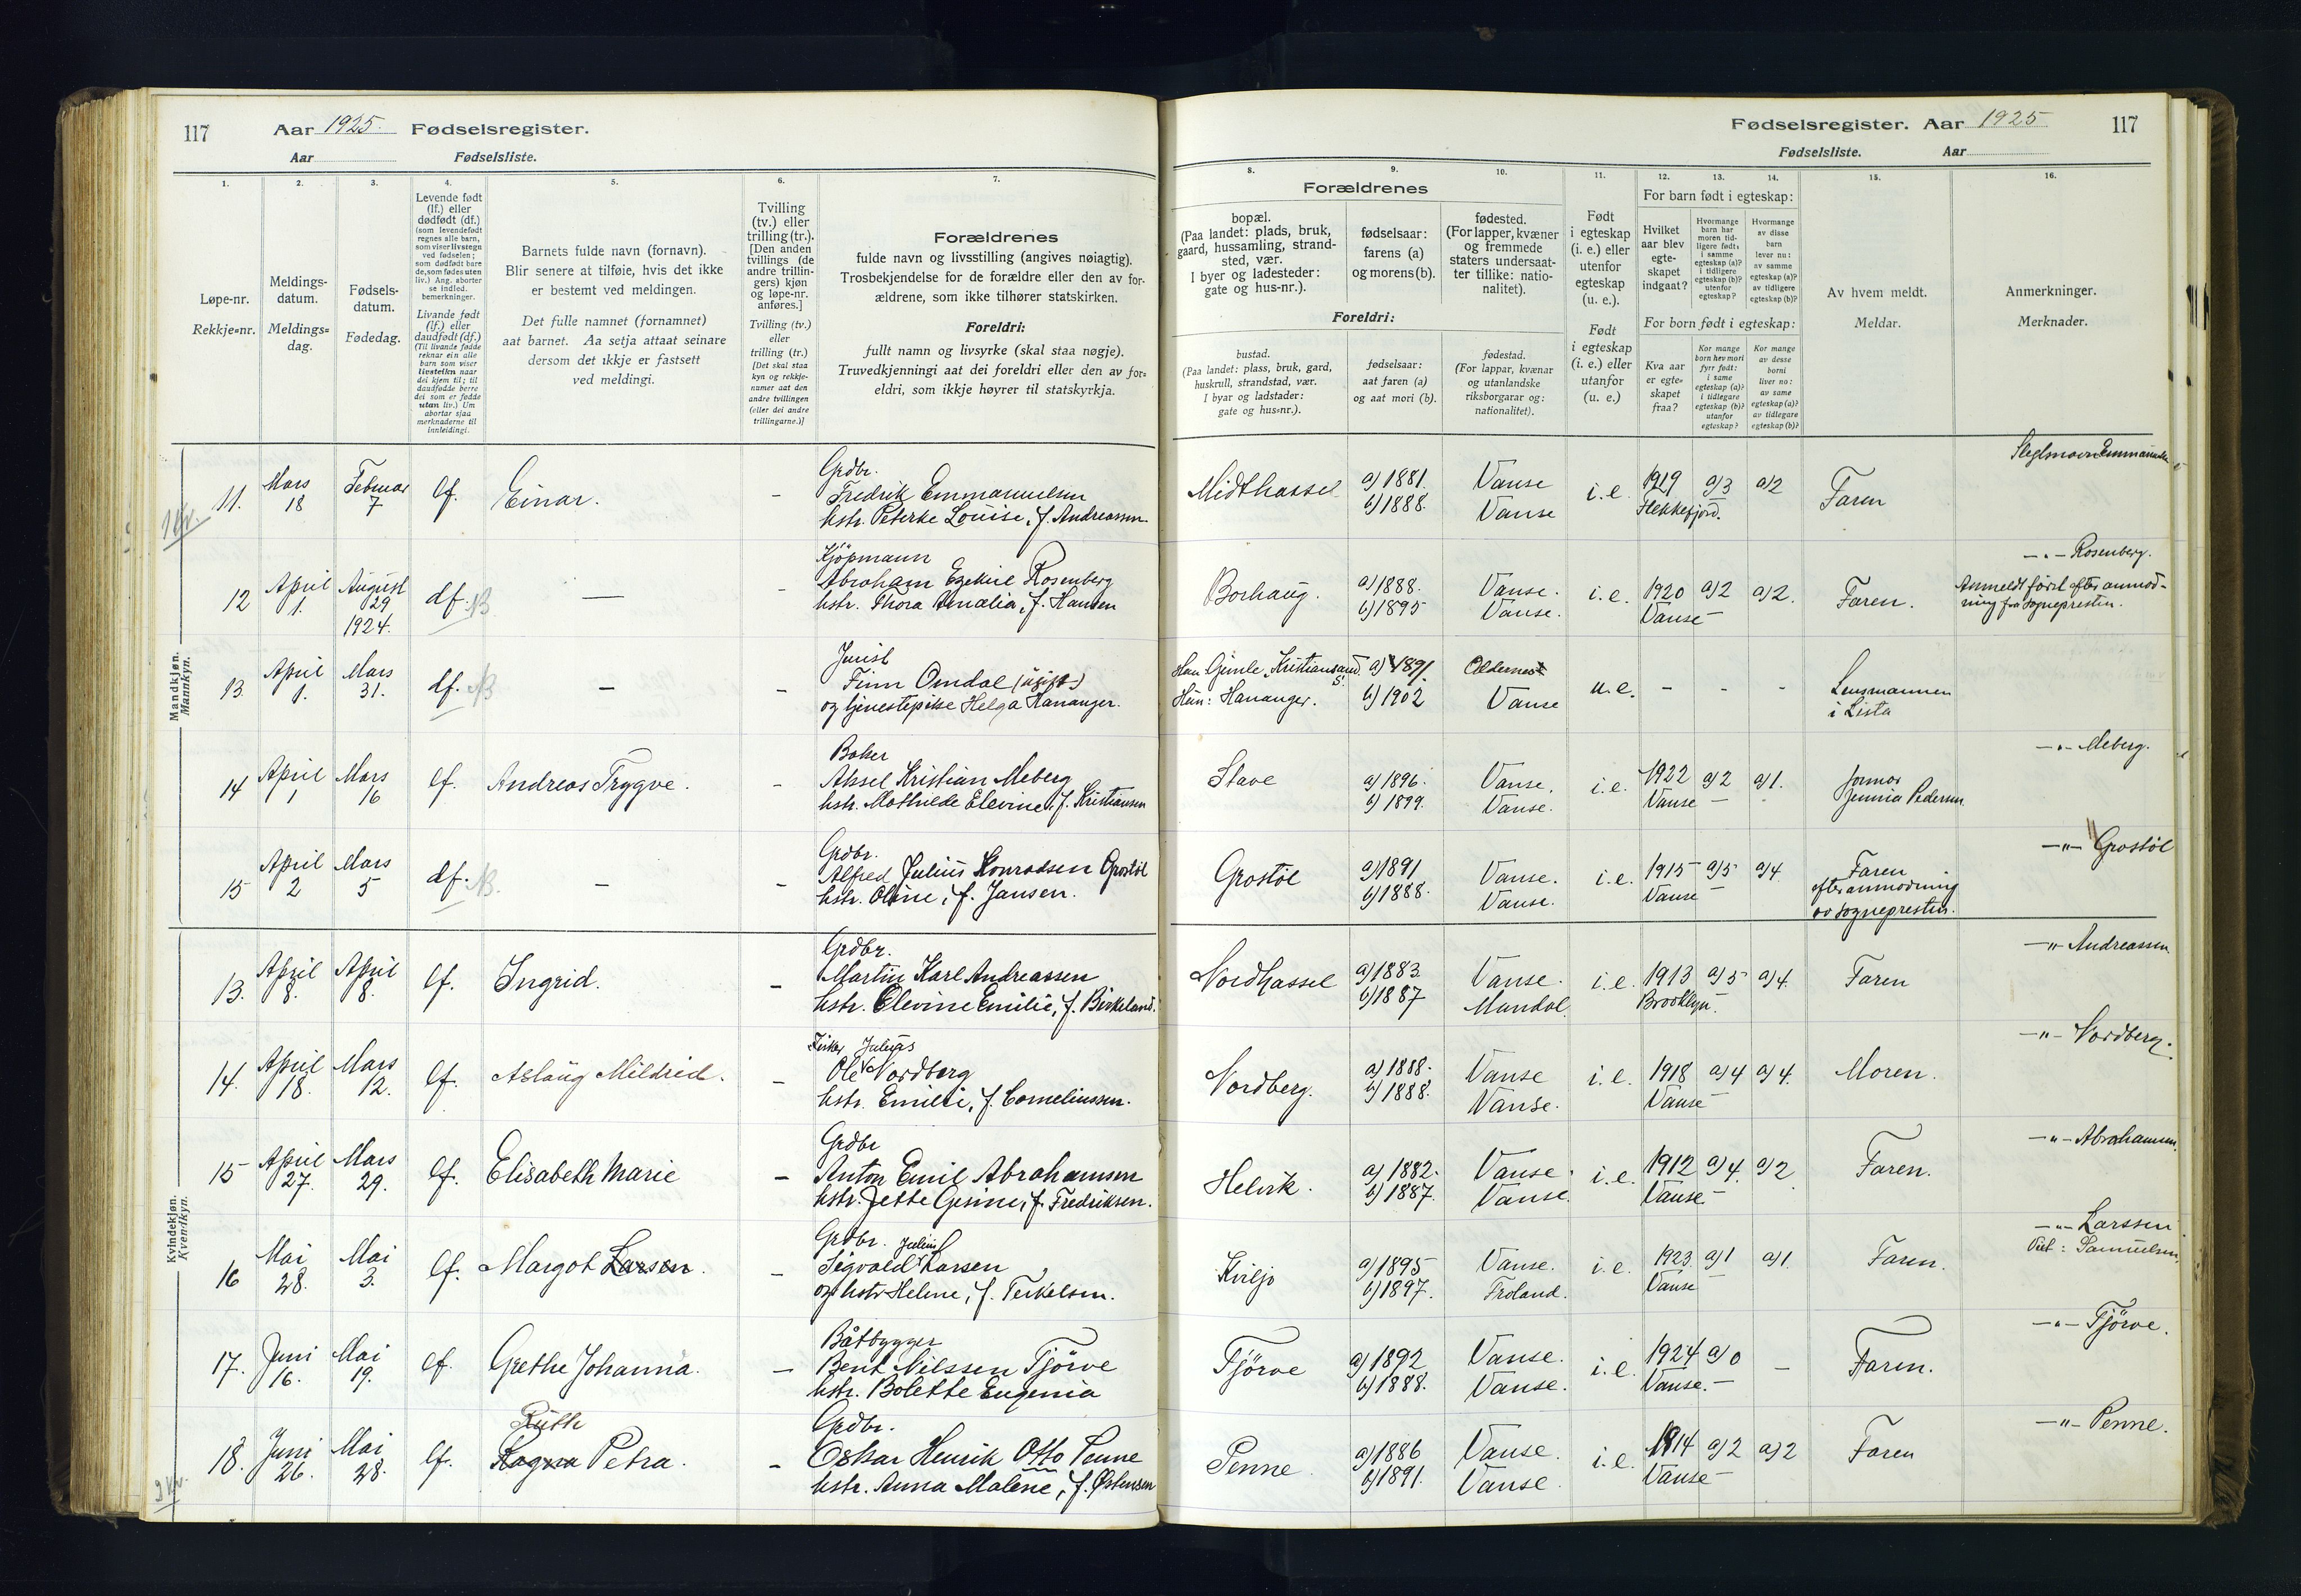 117 Aar 1925. Fødselsregister.
Aar Fødselsliste.
Fødselsregister. Aar 1925 117
Fødselsliste. Aar
1.
Løpe-nr.
Rekkje=nr.
2.
Meldings-
datum.
Meldings=
dag.
3.
Fødsels-
datum.
Fødedag.
4.
Levende født
(lf.) eller
dødfødt (df.)
(som levendefødt
regnes alle barn,
som viser livstegn
ved fødselen;
som dødfødt bare
de, som fødes uten
liv.) Ang. aborter
se indled.
bemerkninger.
Livande født
(lf.) eller
daudfødt (df.)
(Til livande fødde
reknar ein alle
barn som viser
livsteikn naar
dei kjem til; til
daudfødde berre
dei som er fødde
utan liv.) Um
abortar sjaa
merknaderne til
innleidingi.
5.
Barnets fulde navn (fornavn).
Blir senere at tilføie, hvis det ikke
er bestemt ved meldingen.
Det fulle namnet (fornamnet)
aat barnet. Aa setja attaat seinare
dersom det ikkje er fastsett
ved meldingi.
6.
Tvilling
(tv.) eller
trilling (tr.).
[Den anden
tvillings (de
andre trillin-
gers) kjøn
og løpe-nr.
anføres.]
Tvilling (tv.)
eller
trilling (tr.)
[Det skal staa
kyn og rekkje-
numer aat den
andre tvillingen
(eller dei andre
trillingarne.)]
7.
Forældrenes
fulde navn og livsstilling (angives nøiagtig).
Trosbekjendelse for de forældre eller den av for-
ældrene, som ikke tilhører statskirken.
Foreldri:
fullt namn og livsyrke (skal staa nøgje).
Truvedkjenningi aat dei foreldri eller den av for=
eldri, som ikkje høyrer til statskyrkja.
Forældrenes
8.
bopæl.
(Paa landet: plads, bruk,
gaard, hussamling, strand-
sted, vær.
I byer og ladesteder:
gate og hus-nr.).
9.
fødselsaar:
farens (a)
og morens (b).
10.
fødested.
(For lapper, kvæner
og fremmede
staters undersaat-
ter tillike: natio-
nalitet).
Foreldri:
bustad.
(Paa landet: plass, bruk, gard,
huskrull, strandstad, vær.
I byar og ladstader:
gate og hus=nr.).
fødselsaar:
aat faren (a)
og aat mori (b).
fødestad.
(For lappar, kvænar
og utanlandske
riksborgarar og:
nationalitet).
11.
Født
i egteskap
(i. e.) eller
utenfor
egteskap
(u. e.).
Født
i egteskap
(i. e.) eller
utanfor
egteskap
(u. e.)
12. 13. 14.
For barn født i egteskap:
Hvilket
aar blev
egte-
skapet
indgaat?
Hvormange
barn har
moren tid-
ligere født:
i samme
egteskap (a)?
i tidligere
egteskap (b)?
utenfor
egteskap?
Hvormange
av disse
barn
lever nu:
av samme
egteskap (a)?
av tidligere
egteskap (b)?
For born født i egteskap:
Kva aar
er egte=
skapet
fraa?
Kor mange
born hev mori
fyrr født:
i same
egteskap (a)?
i tidlegare
egteskap (b)?
utanfor
egteskap?
Kor mange
av desse
borni
liver no:
av same
egteskap (a)?
av tidlegare
egteskap (b)?
15.
Av hvem meldt.
Meldar.
16.
Anmerkninger.
Merknader.
Mandkjøn.
Mannkyn.
11. Mars 18 Februar 7 lf. Einar. -
Grdbr.
Fredrik Emmanuelsen
hstr. Peterke Louise, f. Andreassen
Midthassel a) 1881. b) 1888. Vanse Vanse i.e. 1919 Flekkefjord. a)3 a)2 Faren
Slegtsnavn Emmanuelsen
12 April 1. August 29 1924. df. NB — -
Kjøpmann
Abraham Ezekiel Rosenberg
hstr. Thora Amalia, f. Hansen
Borhaug. a) 1888. b) 1895 Vanse. Vanse. i.e. 1920 Vanse a)2 a)2. Faren.
—"— Rosenberg.
Anmeldt først efter anmod-
ning fra sognepresten.
13 April 1. Mars 31. df. NB - -
Jurist
Finn Omdal (ugift)
og tjenestepike Helga Hananger.
Han Gimle, Kristiansand S. a) 1891.
Hun: Hananger. b) 1902
Vanse u.e. - - -
Lensmannen
i Lista
14 April 1 Mars 16 lf. Andreas Trygve. -
Baker
Aksel Kristian Meberg
hstr. Mathilde Elevine, f. Kristiansen
Stave a) 1896. b) 1899. Vanse. Vanse. i.e. 1922 Vanse a)2 a)1.
formor
Jennia Pedersen
—"— Meberg.
15 April 2 Mars 5 df. NB. - -
Grdbr.
Alfred Julius Konradsen Grostøl
hstr. Oline, f. Jansen.
Grostøl a) 1891 b) 1888. Vanse. Vanse. i.e. 1915 Vanse a)5 a)4
Faren
efter anmodning
av sognepresten.
—"— Grostøl
Kvindekjøn.
Kvendkyn.
13. April 8. April 8. lf. Ingrid. -
Grdbr.
Martin Karl Andreassen
hstr. Elevine Emilie, f. Birkeland.
Nordhassel a) 1883 b) 1887 Vanse. Mandal. i.e. 1913 Brooklyn. a)5 a)4. Faren
—"— Andreassen
14. April 18. Mars 12. lf. Aslaug Mildred. -
Fisker Julius
Ole Nordberg
hstr. Emilie, f. Corneliussen.
Nordberg. a) 1888. b) 1888. Vanse Vanse. i.e. 1918 Vanse a)4 a)4. Moren.
—"— Nordberg.
15 April 27. Mars 29. lf. Elisabeth Marie -
Grdbr
Anton Emil Abrahamsen
hstr. Jette Gesine, f. Fredriksen.
Helvik. a) 1882. b) 1887. Vanse. Vanse. i.e. 1912 Vanse a)4. a)2 Faren.
—"— Abrahamsen.
16 Mai 28. Mai 3. lf. Margot Larsen. -
Grdbr. Julius
Sigvald Larsen
og hstr Helene, f. Terkelsen.
Kviljo a) 1895 b) 1897. Vanse. Froland. i.e. 1923. Vanse a)1 a)1. Faren.
—"— Larssen
Samuelsen.
17. Juni 16. Mai 19. lf. Grethe Johanna. -
Båtbygger
Bent Nilssen Tjörve
hstr. Bolette Eugenia
Tjörve a) 1892 b) 1888. Vanse. Vanse. i.e. 1924 Vanse. a)0 - Faren.
—"— Tjörve.
18. Juni 26. Mai 28. lf.
Ruth
Ragna Petra. -
Grdbr.
Oskar Henrik Otto Penne
hstr. Anna Malene, f. Østensen
Penne a) 1886 b) 1891. Vanse. Vanse. i.e. 1914 Vanse a)2 a)2 Faren
—"— Penne.